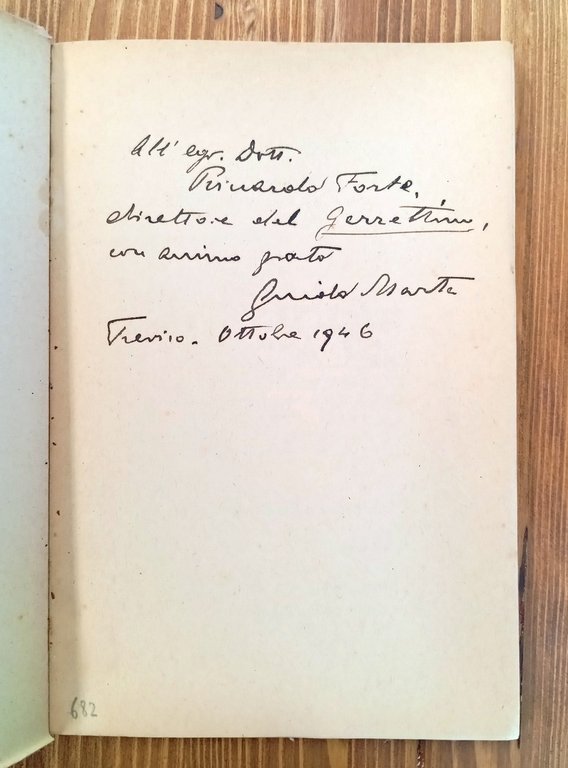 All' egr. Dott.
Riccardo Forte,
direttore del Gazzettino,
con animo grato
Guido Marta
Treviso. Ottobre 1946
682